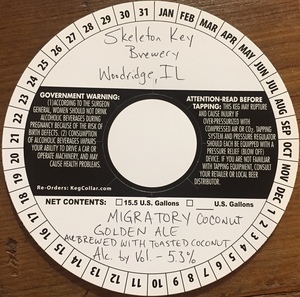 Skeleton Key
Brewery
Woodridge, IL
GOVERNMENT WARNING:
(1)ACCORDING TO THE SURGEON
GENERAL, WOMEN SHOULD NOT DRINK
ALCOHOLIC BEVERAGES DURING
PREGNANCY BECAUSE OF THE RISK
OF BIRTH DEFECTS. (2) CONSUMPTION
OF ALCOHOLIC BEVERAGES IMPAIRS
YOUR ABILITY TO DRIVE A CAR OR
OPERATE MACHINERY, AND MAY
CAUSE HEALTH PROBLEMS.
Re-Orders: KegCollar.com
ATTENTION-READ BEFORE
TAPPING: THIS KEG MAY RUPTURE
AND CAUSE INJURY IF
OVER-PRESSURIZED WITH
COMPRESSED AIR OR CO2; TAPPING
SYSTEM AND PRESSURE REGULATOR
SHOULD EACH BE EQUIPPED WITH A
PRESSURE RELIEF (BLOW OFF)
DEVICE. IF YOU ARE NOT FAMILIAR
WITH TAPPING EQUIPMENT, CONSULT
YOUR RETAILER OR LOCAL BEER
DISTRIBUTOR.
NET CONTENTS: 15.5 U.S. Gallons U.S. Gallons
MIGRATORY COCONUT
GOLDEN ALE
ALE BREWED WITH TOASTED COCONUT
Alc. by Vol. - 5.3%
JAN FEB MAR APR MAY JUN JUL AUG SEP OCT NOV DEC
1 2 3 4 5 6 7 8 9 10 11 12 13 14 15 16 17 18 19 20 21 22 23 24 25 26 27 28 29 30 31